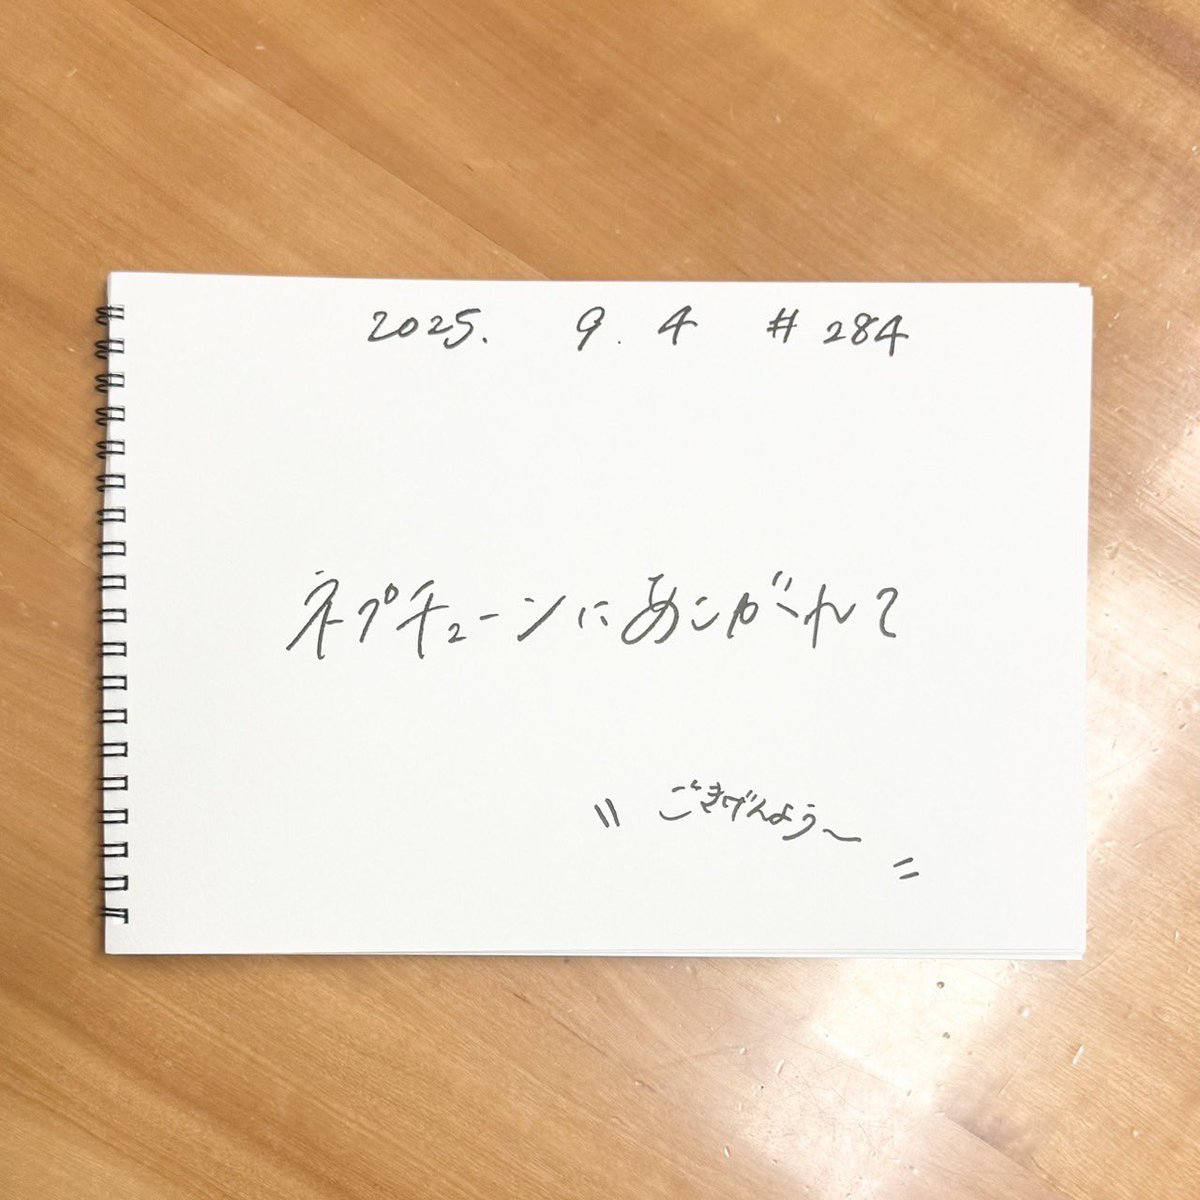 2025. 9. 4 #284
ネプチューンにあこがれて
〝ごきげんよう〜〟